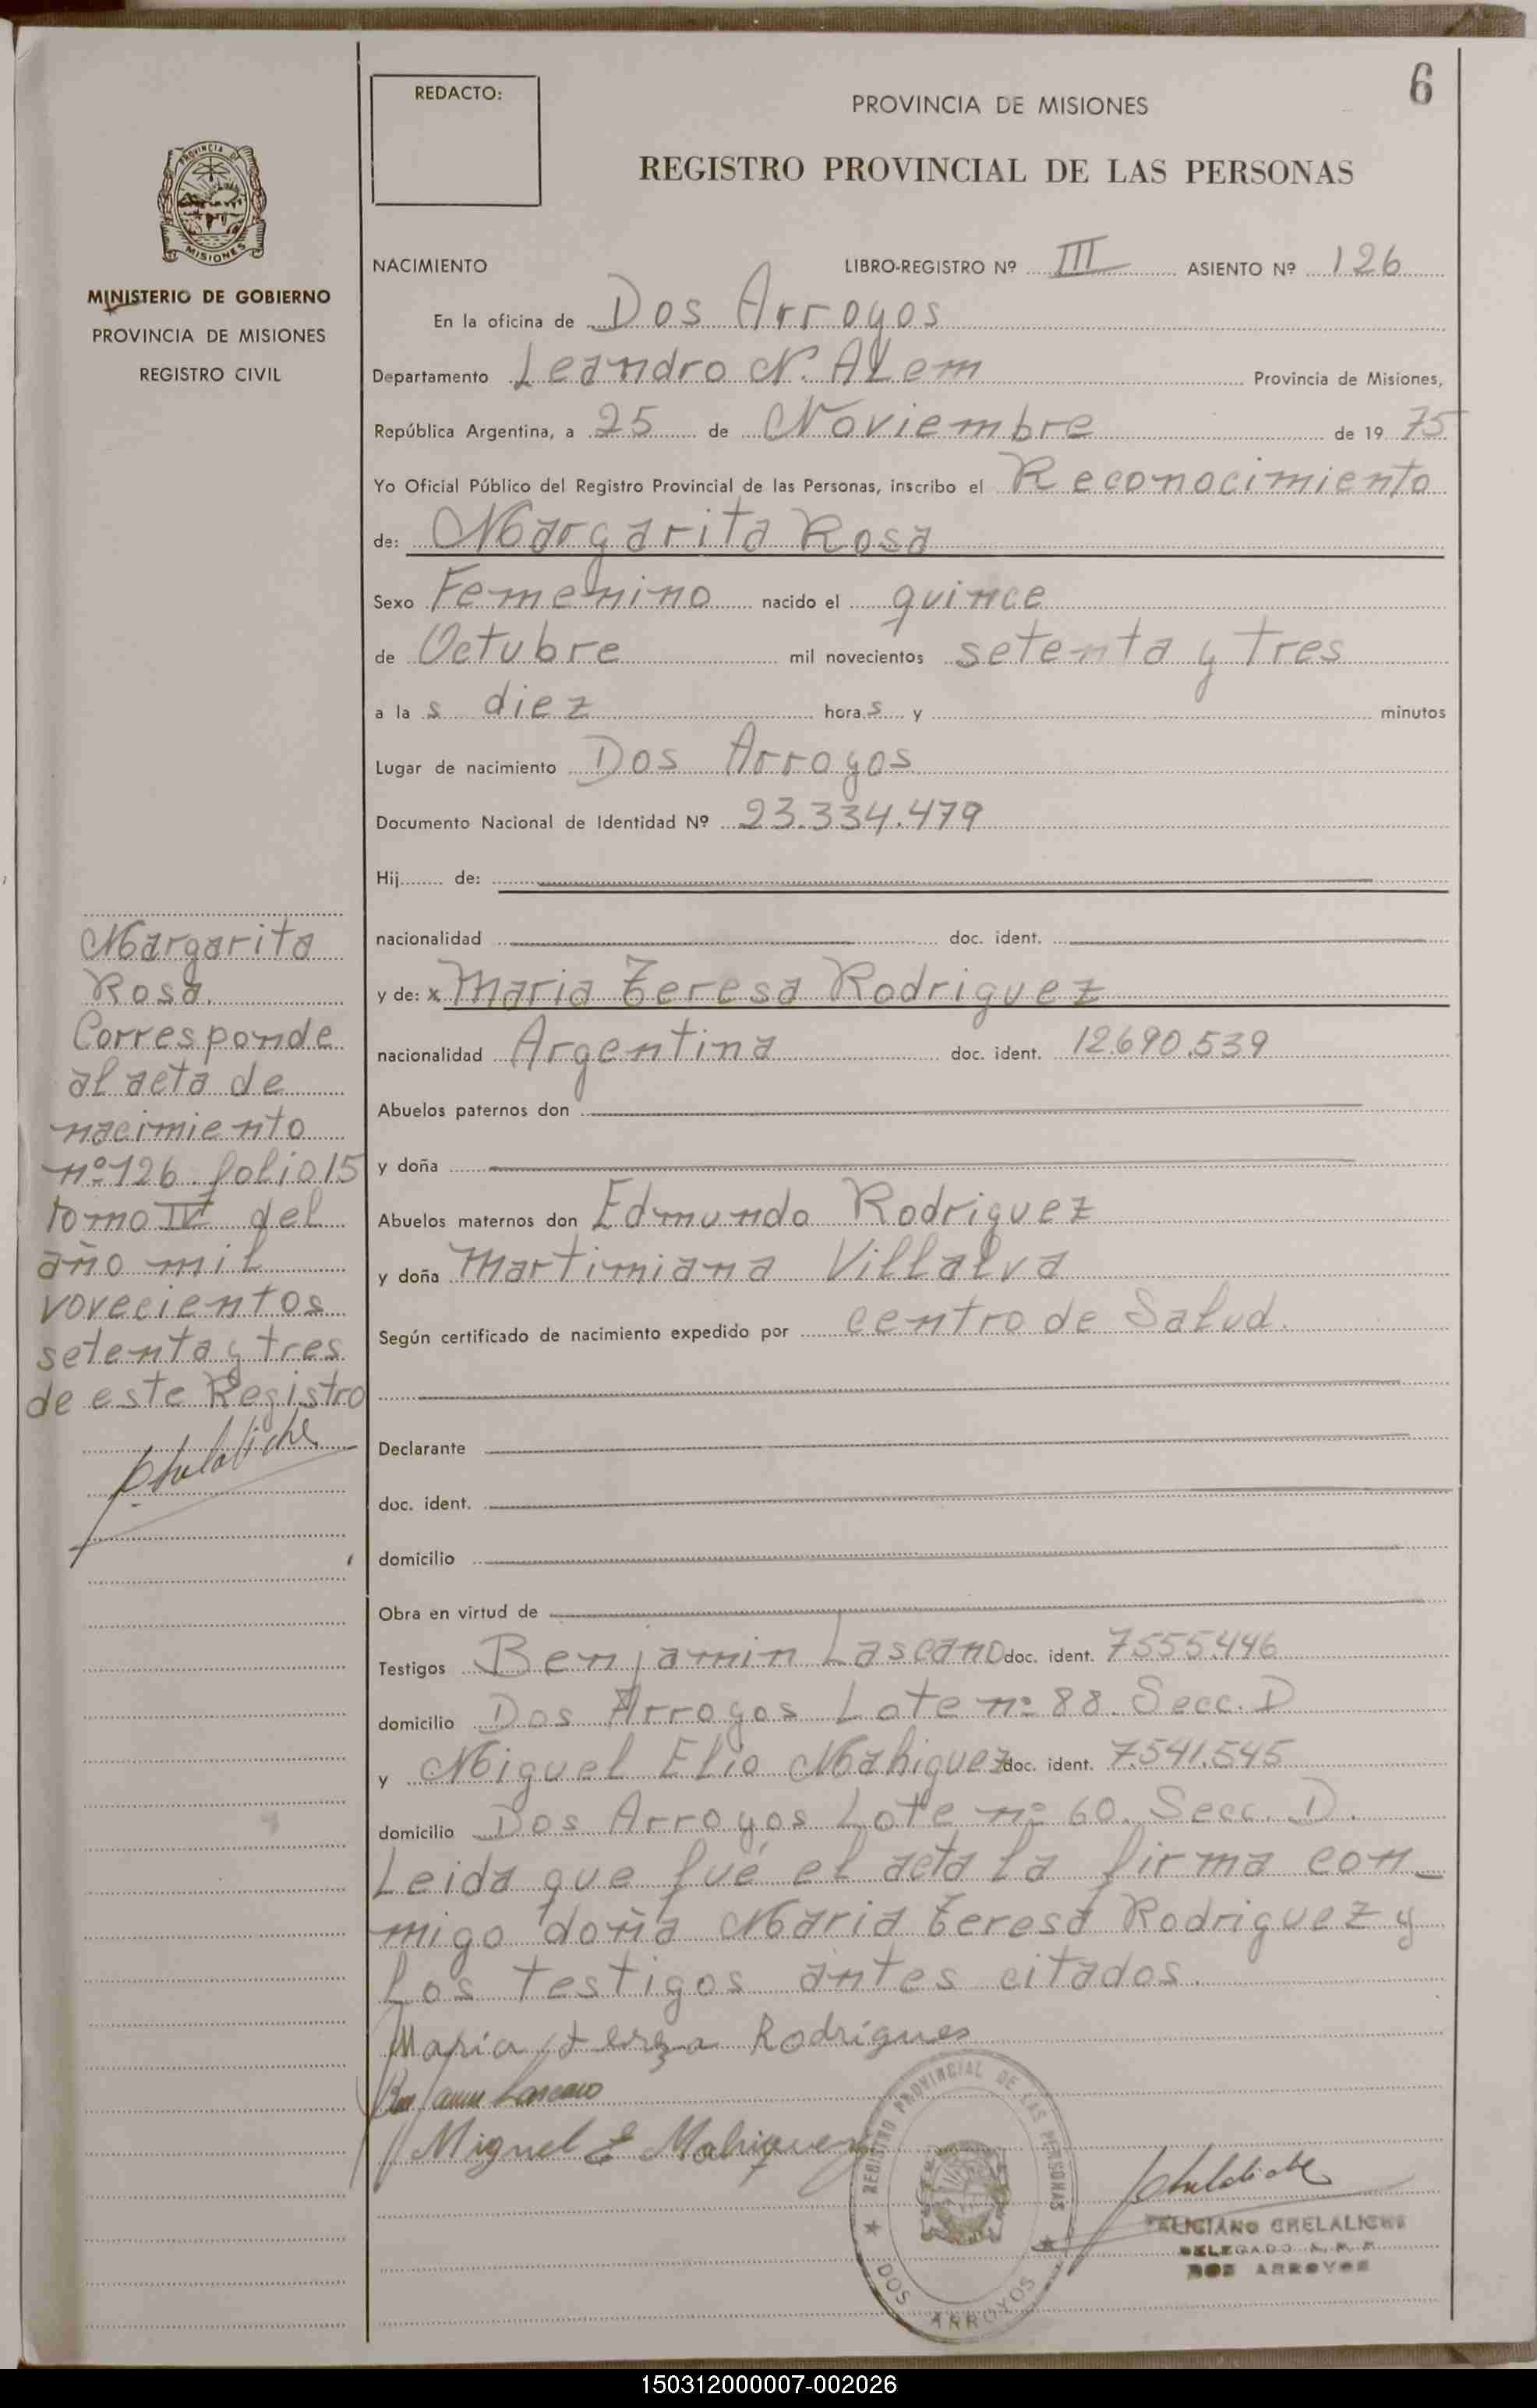 6
REDACTO:
PROVINCIA DE MISIONES
REGISTRO PROVINCIAL DE LAS PERSONAS
PROVINCIA DE
MISIONES
MINISTERIO DE GOBIERNO
PROVINCIA DE MISIONES
REGISTRO CIVIL
NACIMIENTO LIBRO-REGISTRO Nº III ASIENTO Nº 126
En la oficina de Dos Arroyos
Departamento Leandro N. ALem Provincia de Misiones,
República Argentina, a 25 de Noviembre de 19 75
Yo Oficial Público del Registro Provincial de las Personas, inscribo el Reconocimiento
de: Margarita Rosa
Sexo Femenino nacido el quince
de Octubre mil novecientos setenta y tres
a la s diez hora s y minutos
Lugar de nacimiento Dos Arroyos
Documento Nacional de Identidad Nº 23.334.479
Hij........ de:
nacionalidad doc. ident.
y de: x Maria Teresa Rodriguez
nacionalidad Argentina doc. ident. 12.690.539
Abuelos paternos don
y doña
Abuelos maternos don Edmundo Rodriguez
y doña Martimiana Villalva
Según certificado de nacimiento expedido por centro de Salud.
Declarante
doc. ident.
domicilio
Obra en virtud de
Testigos Benjamin Lascano doc. ident. 7.555.446
domicilio Dos Arroyos Lote nº 88. Secc. D
y Miguel Elio Mahiquez doc. ident. 7.541.545
domicilio Dos Arroyos Lote nº 60. Secc. D.
Leida que fué el acta la firma con-
migo doña Maria Teresa Rodriguez y
los testigos antes citados.
Maria tereza Rodrigues
Benjamin Lascano
Miguel E Mahiquez
REGISTRO PROVINCIAL DE LAS PERSONAS
DOS ARROYOS
Chelaliche
FELICIANO CHELALICHE
DELEGADO R. P. P.
DOS ARROYOS
Margarita
Rosa.
Corresponde
al acta de
nacimiento
nº 126. folio 15
tomo IV del
año mil
vovecientos
setenta y tres
de este Registro
Chelaliche
150312000007-002026